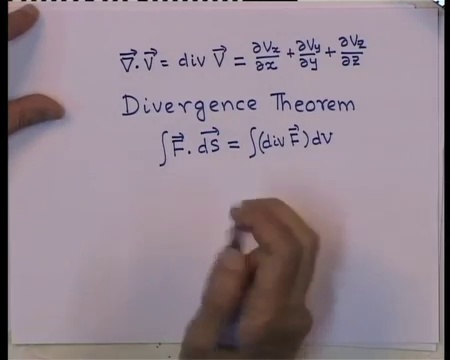 ∇⃗·V⃗ = div V⃗ = ∂Vx/∂x + ∂Vy/∂y + ∂Vz/∂z
Divergence Theorem
∫F⃗·dS⃗ = ∫(div F⃗)dV